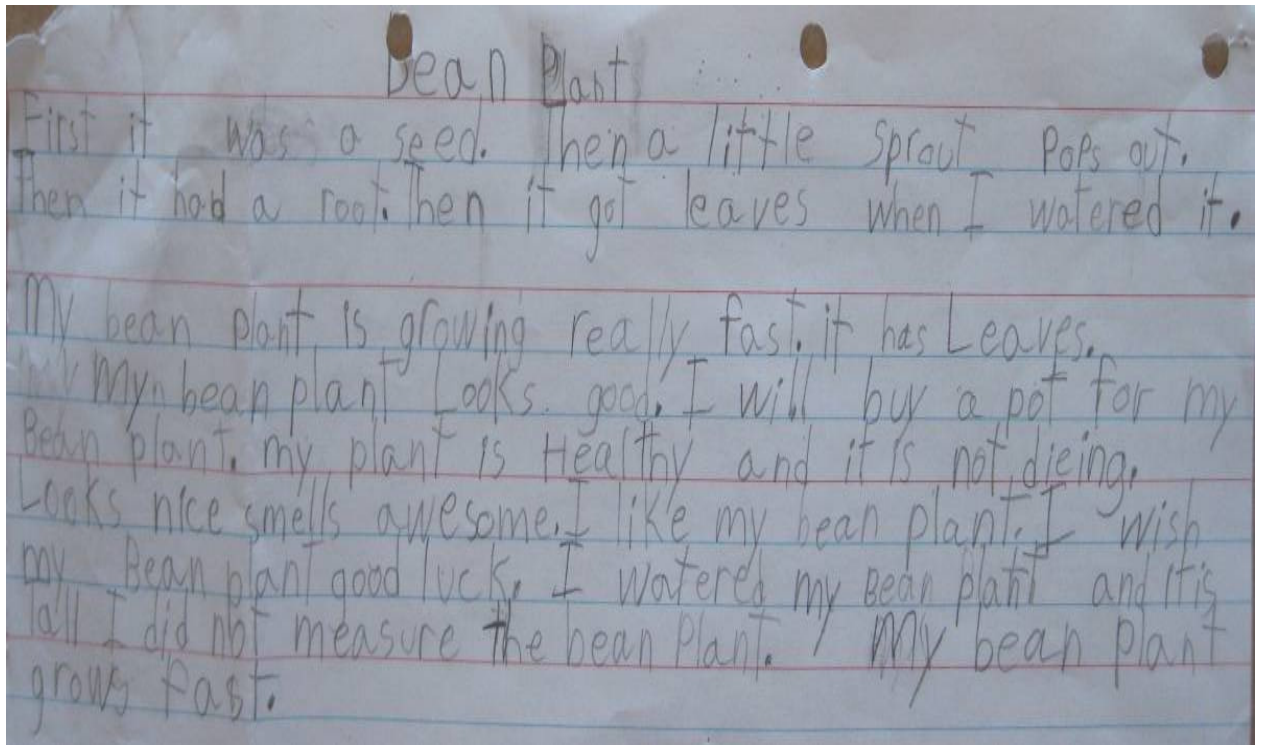 Bean Plant
First it was a seed. Then a little sprout pops out.
Then it had a root. Then it got leaves when I watered it.
My bean plant is growing really fast. it has Leaves.
My bean plant Looks good. I will buy a pot for my
Bean plant. my plant is Healthy and it is not dieing.
Looks nice smells awesome. I like my bean plant. I wish
my Bean plant good luck. I watered my Bean plant and it is
Tall I did not measure the bean Plant. My bean plant
grows fast.